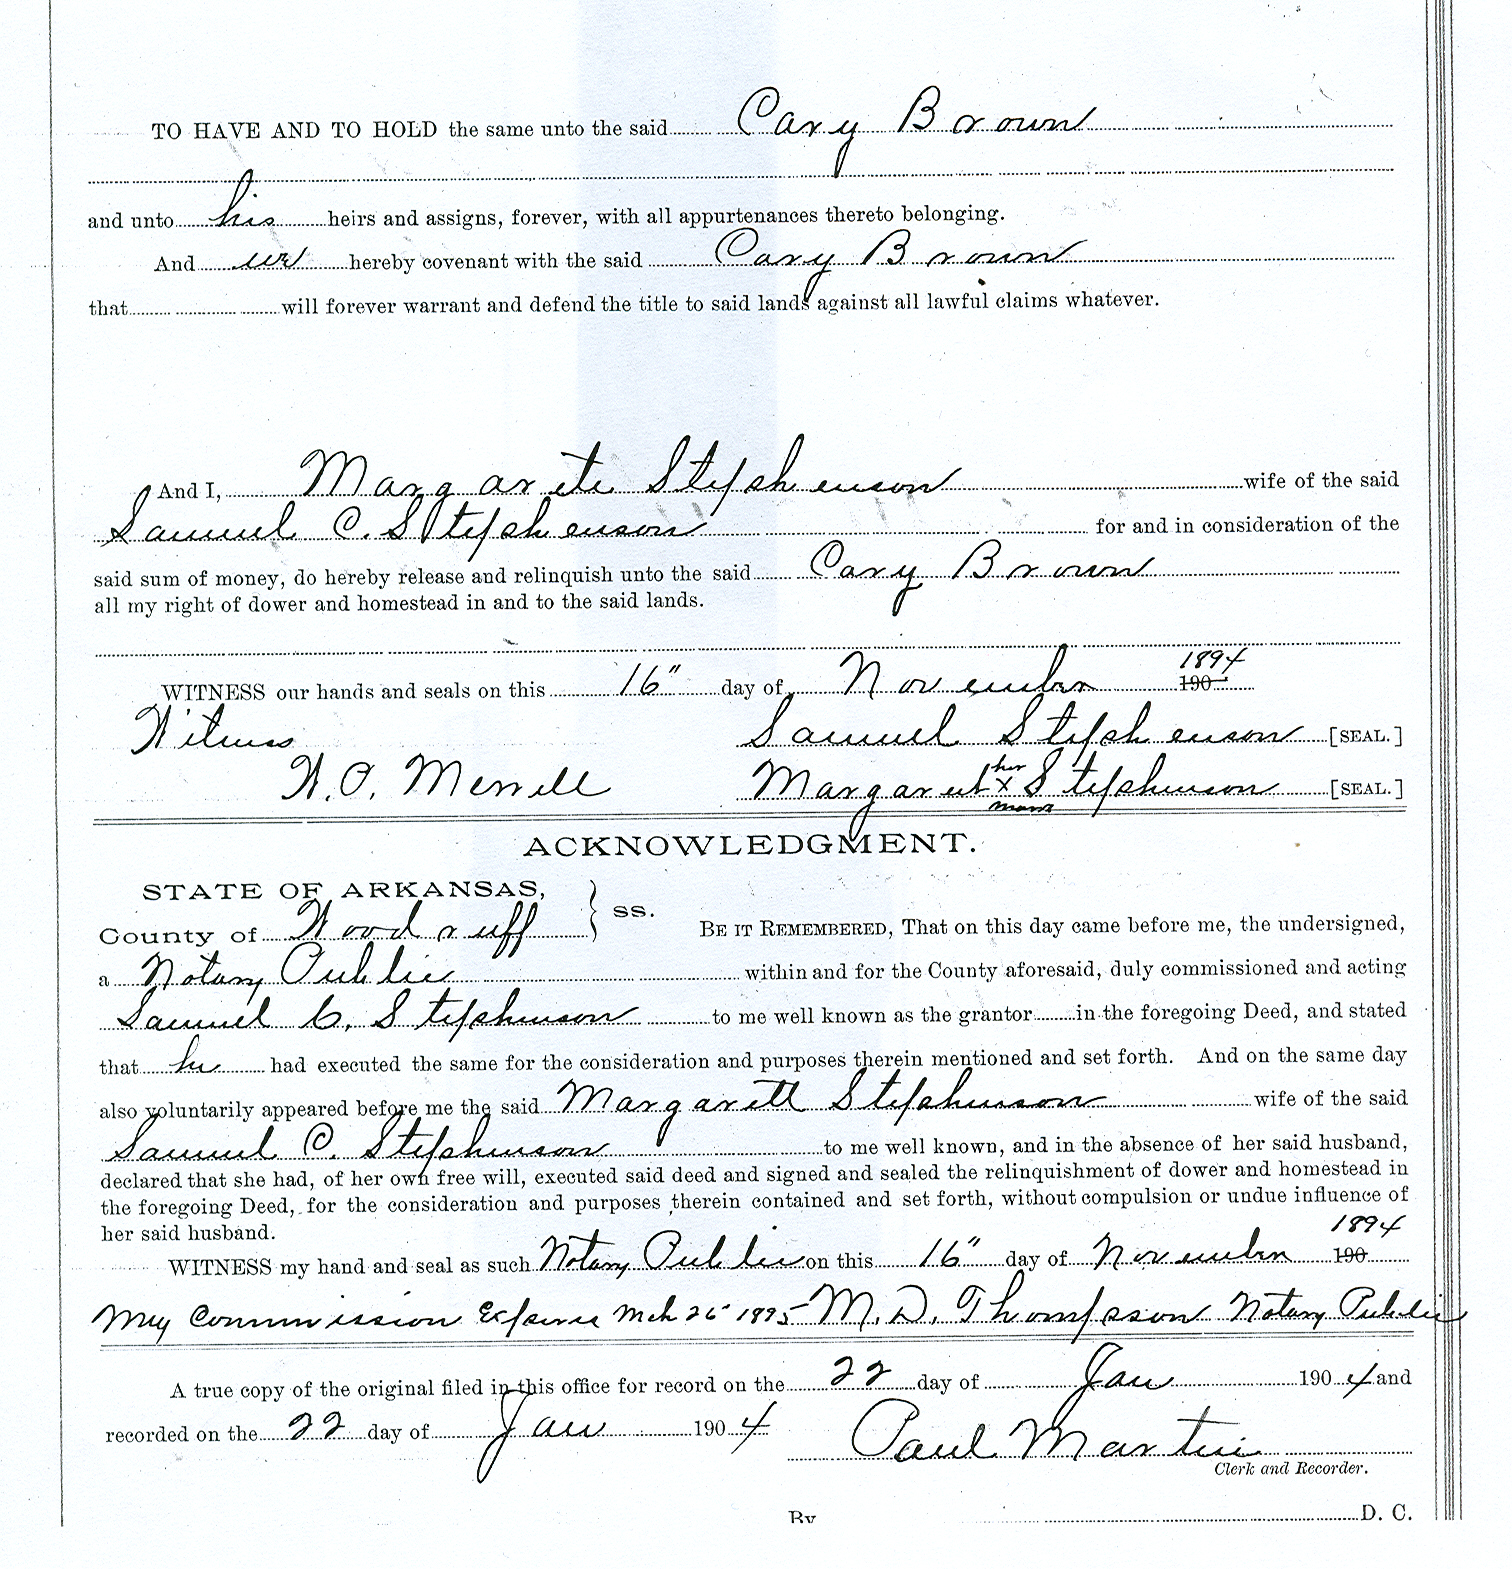 TO HAVE AND TO HOLD the same unto the said Cary Brown
and unto his heirs and assigns, forever, with all appurtenances thereto belonging.
And we hereby covenant with the said Cary Brown
that will forever warrant and defend the title to said lands against all lawful claims whatever.
And I, Margarete Stephenson wife of the said
Samuel C. Stephenson for and in consideration of the
said sum of money, do hereby release and relinquish unto the said Cary Brown
all my right of dower and homestead in and to the said lands.
1894
WITNESS our hands and seals on this 16" day of November 190
Witness Samuel Stephenson [SEAL.]
her
W. O. Merrell Margaret x Stephenson [SEAL.]
mark
ACKNOWLEDGMENT.
STATE OF ARKANSAS, } ss.
County of Woodruff BE IT REMEMBERED, That on this day came before me, the undersigned,
a Notary Public within and for the County aforesaid, duly commissioned and acting
Samuel C. Stephenson to me well known as the grantor in the foregoing Deed, and stated
that he had executed the same for the consideration and purposes therein mentioned and set forth. And on the same day
also voluntarily appeared before me the said Margarett Stephenson wife of the said
Samuel C. Stephenson to me well known, and in the absence of her said husband,
declared that she had, of her own free will, executed said deed and signed and sealed the relinquishment of dower and homestead in
the foregoing Deed, for the consideration and purposes therein contained and set forth, without compulsion or undue influence of
her said husband.
1894
WITNESS my hand and seal as such Notary Public on this 16" day of November 190
My Commission Expires Mch 26" 1895 M. D. Thompson Notary Public
A true copy of the original filed in this office for record on the 22 day of Jan 1904 and
recorded on the 22 day of Jan 1904
Paul Martin
Clerk and Recorder.
By D. C.